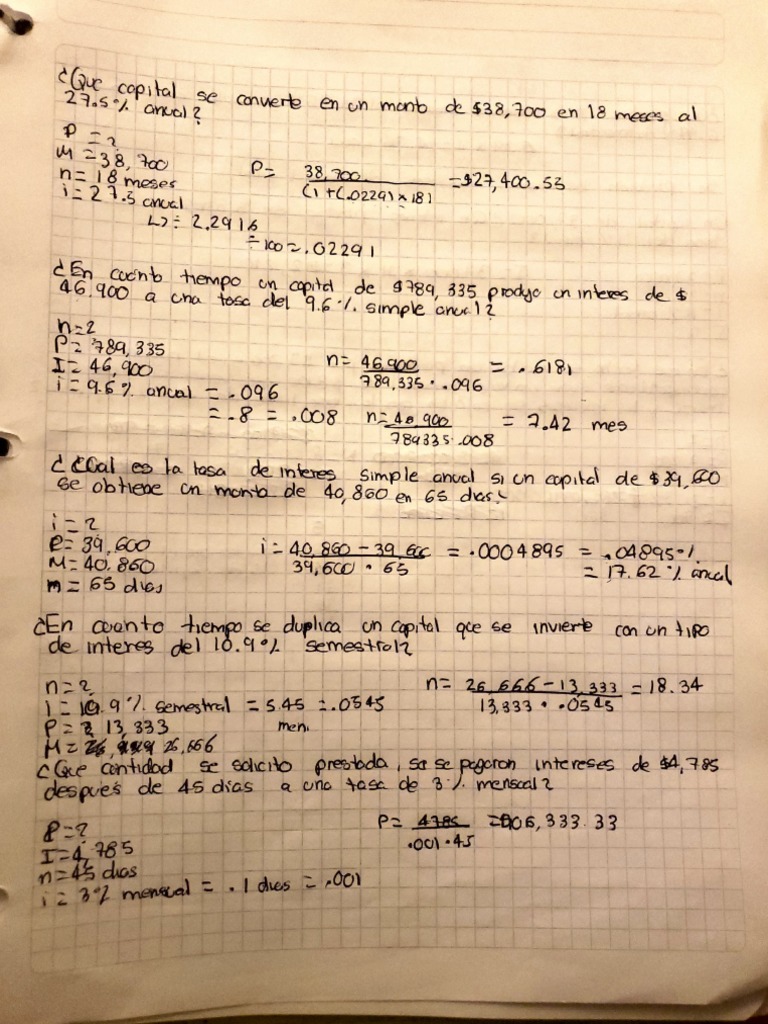 ¿Que capital se convierte en un monto de $38,700 en 18 meses al
27.5% anual?
P = ?
M = 38,700
n = 18 meses
i = 27.5 anual
P = 38,700 / (1+(.02291×18) = $27,400.53
L> ÷ 2.2916
÷100 = .02291
¿En cuánto tiempo un capital de $789,335 produjo un interes de $
46,900 a una tasa del 9.6% simple anual?
n = ?
P = 789,335
I = 46,900
i = 9.6% anual = .096
= .8 = .008
n = 46,900 / 789,335 · .096 = .6181
n = 46,900 / 789335 · .008 = 7.42 mes
¿Cual es la tasa de interes simple anual si un capital de $39,600
se obtiene un monto de 40,860 en 65 dias?
i = ?
P = 39,600
M = 40,860
m = 65 dias
i = 40,860 - 39,600 / 39,600 · 65 = .0004895 = .04895%
= 17.62% anual
¿En cuanto tiempo se duplica un capital que se invierte con un tipo
de interes del 10.9% semestral?
n = ?
i = 10.9% semestral = 5.45 = .0545
P = 13,333
M = 26,666
n = 26,666 - 13,333 / 13,333 · .0545 = 18.34
¿Que cantidad se solicito prestada, si se pagaron intereses de $4,785
después de 45 dias a una tasa de 3% mensual?
P = ?
I = 4,785
n = 45 dias
i = 3% mensual = .1 dias = .001
P = 4785 / .001 · 45 = 106,333.33